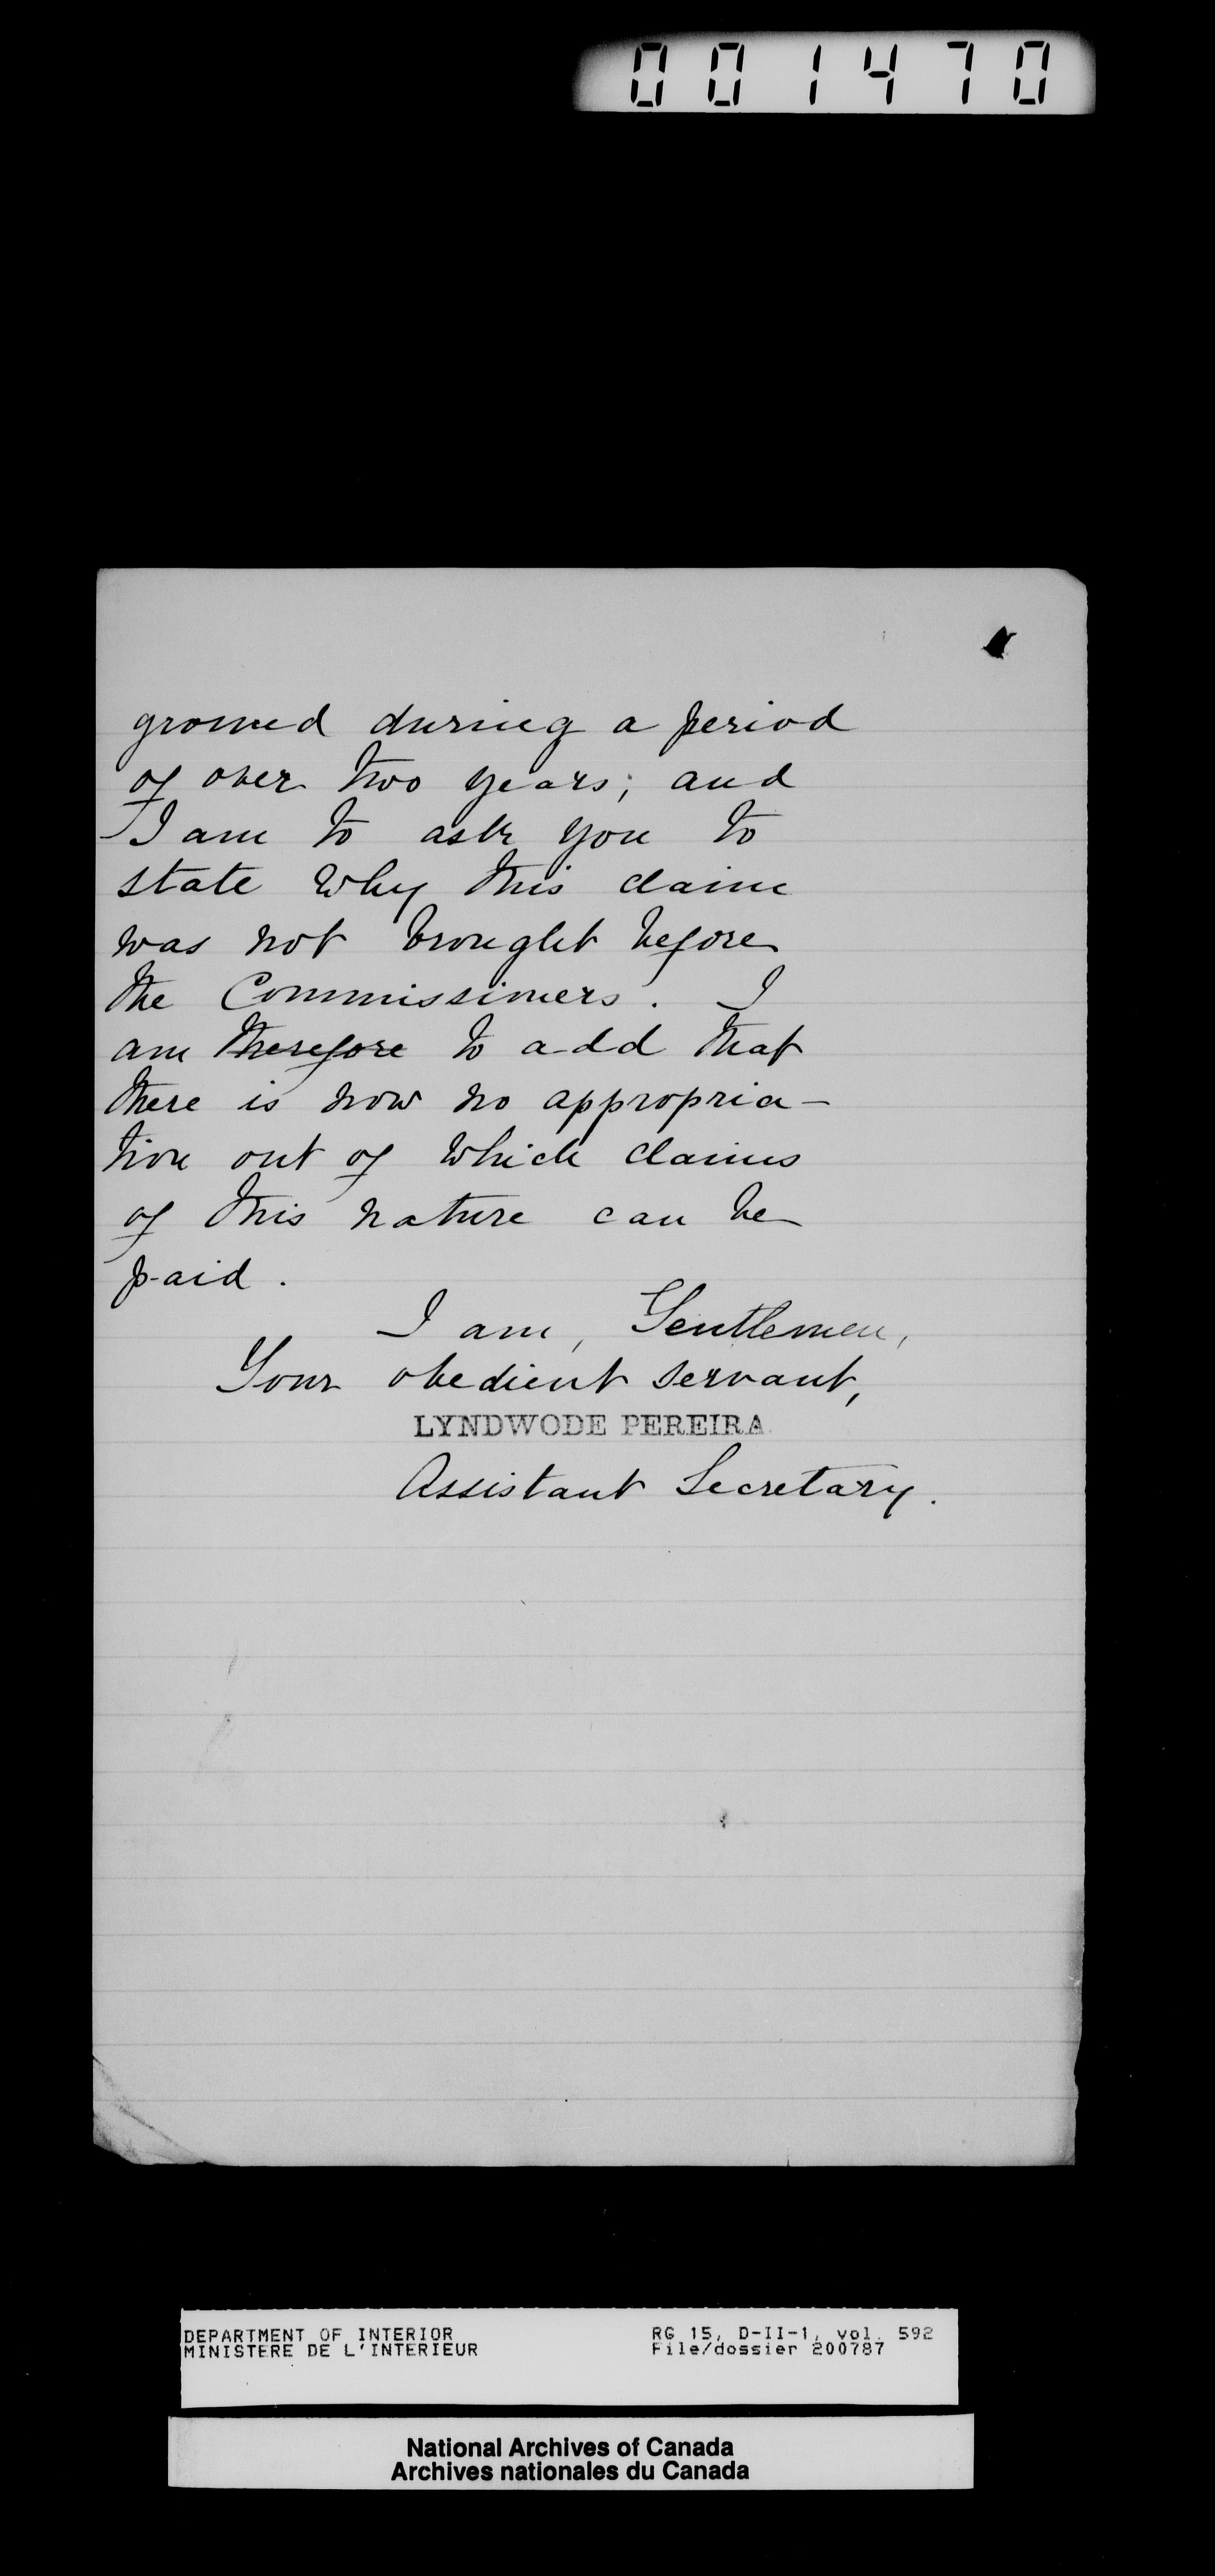 001470
ground during a period
of over two years; and
I am to ask you to
state why this claim
was not brought before
the Commissioners. I
am therefore to add that
there is now no appropria-
tion out of which claims
of this nature can be
paid.
I am, Gentlemen,
Your obedient servant,
LYNDWODE PEREIRA
Assistant Secretary.
DEPARTMENT OF INTERIOR RG 15, D-II-1, vol. 592
MINISTERE DE L'INTERIEUR File/dossier 200787
National Archives of Canada
Archives nationales du Canada